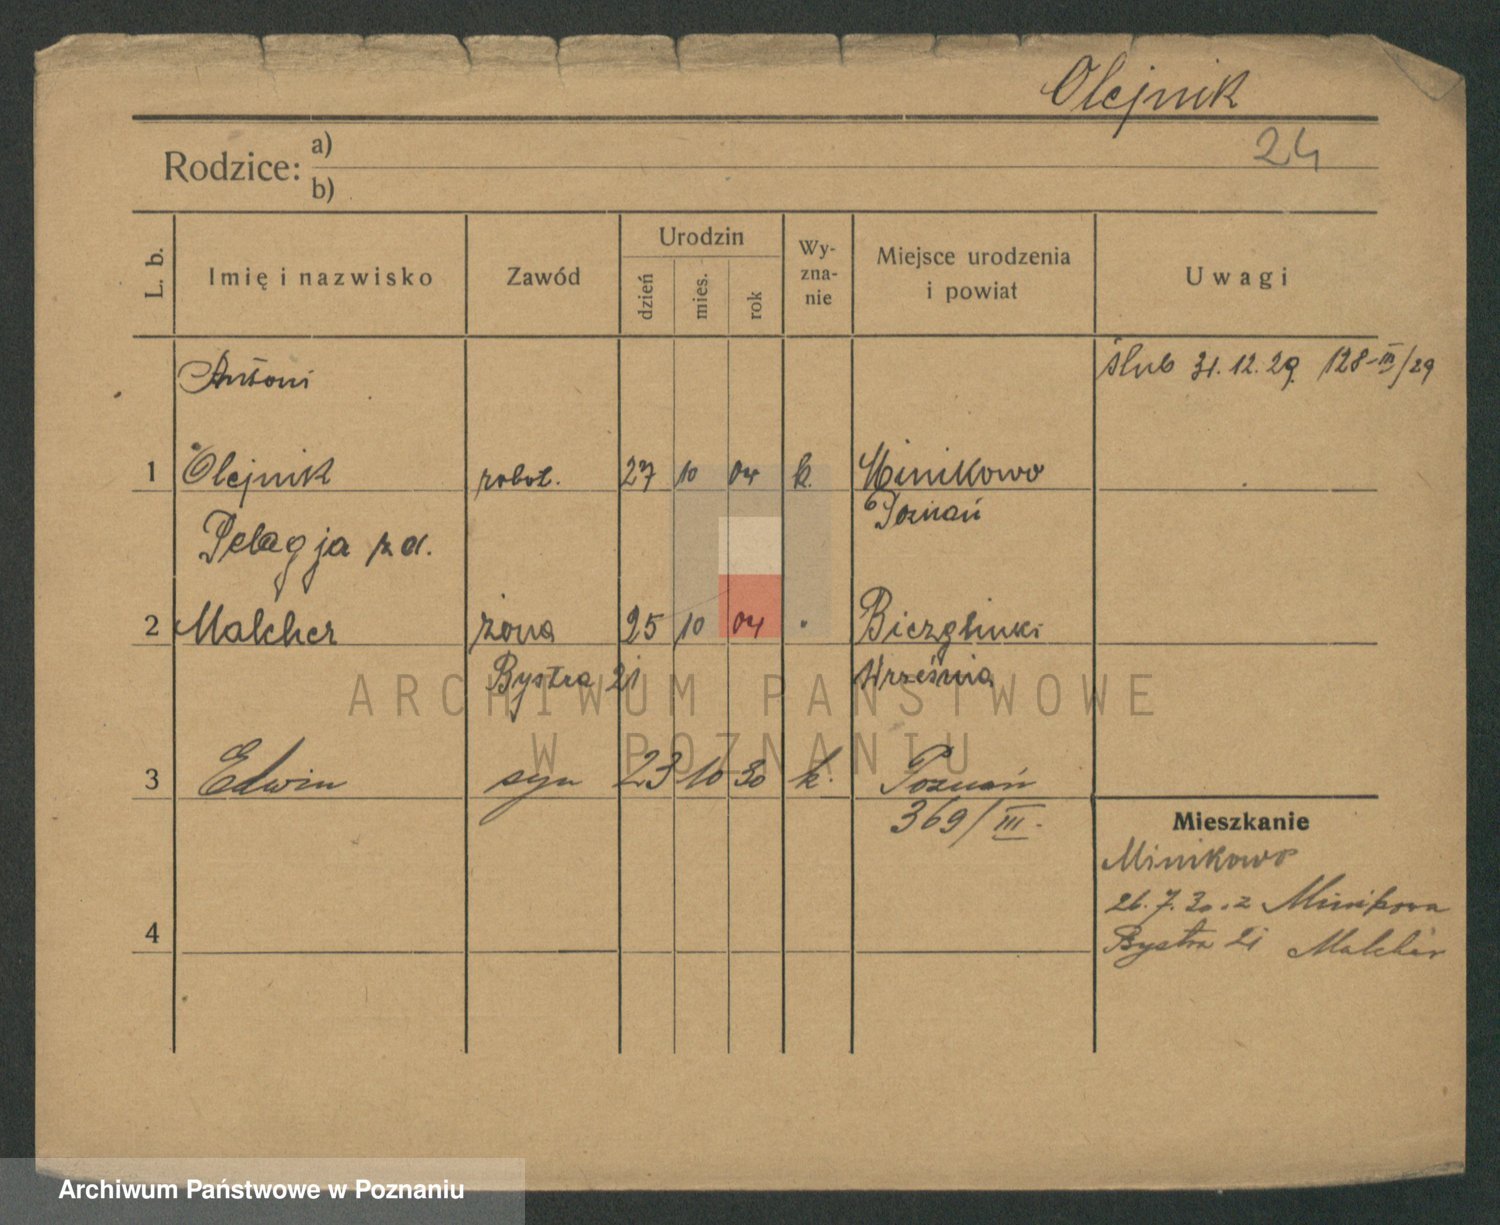 Olejnik
24
Rodzice: a)
b)
L. b.
Imię i nazwisko
Zawód
Urodzin
dzień
mies.
rok
Wy-
zna-
nie
Miejsce urodzenia
i powiat
Uwagi
Antoni
ślub 31.12.29. 128-III/29
1 Olejnik robot. 27 10 04 k. Minikowo
Poznań
Pelagja zd.
2 Malcher żona 25 10 04 " Biezglinki
Bystra 21 Września
3 Edwin syn 23 10 30 k. Poznań
369/III.
Mieszkanie
Minikowo
26.7.30. z Minikowa
4
Bystra 21 Malcher
ARCHIWUM PAŃSTWOWE
W POZNANIU
Archiwum Państwowe w Poznaniu